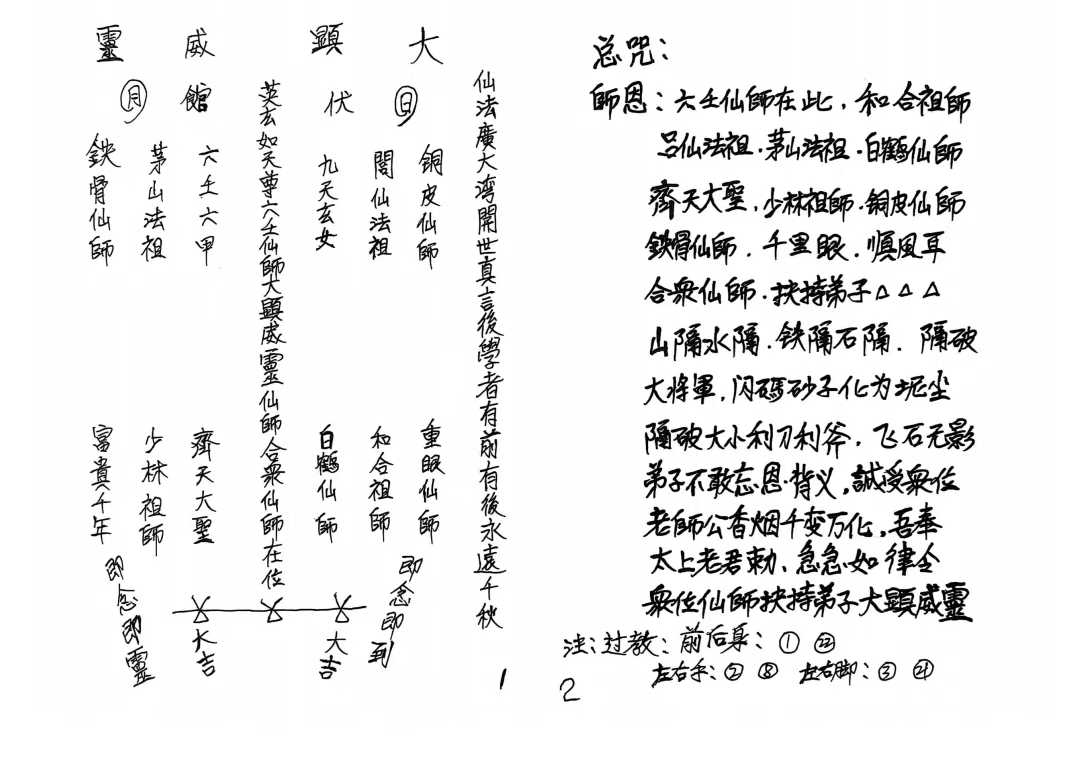 大顯威靈
仙法廣大湾開世真言後學者有前有後永遠千秋
日
伏
館
月
銅皮仙師
閭仙法祖
九天玄女
英玄如天尊六壬仙師大顯威靈仙師合衆仙師在位
六壬六甲
茅山法祖
鉄骨仙師
重眼仙師
和合祖師
白鶴仙師
齊天大聖
少林祖師
富貴千年
即念即到
大吉
大吉
即念即靈
1
总咒：
師恩：六壬仙師在此，和合祖師
呂仙法祖．茅山法祖．白鶴仙師
齊天大聖．少林祖師．銅皮仙師
鉄骨仙師．千里眼．順風耳
合衆仙師．扶持弟子△△△
山隔水隔．鉄隔石隔．隔破
大将軍，闪碼砂子化为坭尘
隔破大小利刀利斧，飞石无影
弟子不敢忘恩背义，誠受衆位
老師公香烟千变万化，吾奉
太上老君勅、急急如律令
衆位仙師扶持弟子大顯威靈
法：过教：前后身：①
左右手：② ⑧ 左右脚：③
2